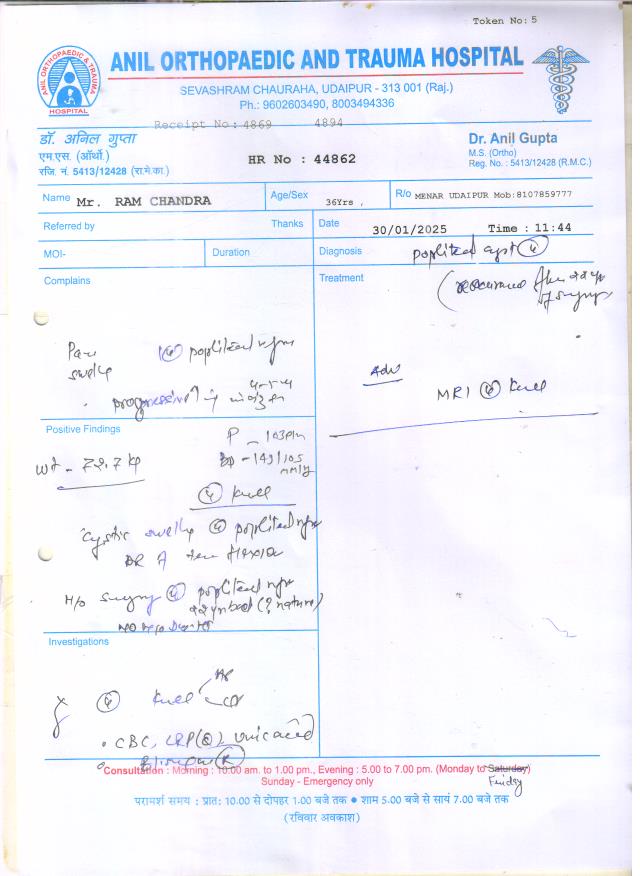 Token No: 5
ANIL ORTHOPAEDIC AND TRAUMA HOSPITAL
ANIL ORTHOPAEDIC & TRAUMA
HOSPITAL
SEVASHRAM CHAURAHA, UDAIPUR - 313 001 (Raj.)
Ph.: 9602603490, 8003494336
Receipt No: 4869 4894
डॉ. अनिल गुप्ता
एम.एस. (ऑर्थो.)
रजि. नं. 5413/12428 (रा.मे.का.)
HR No : 44862
Dr. Anil Gupta
M.S. (Ortho)
Reg. No. : 5413/12428 (R.M.C.)
Name Mr. RAM CHANDRA
Age/Sex 36Yrs ,
R/o MENAR UDAIPUR Mob:8107859777
Referred by Thanks
Date 30/01/2025 Time : 11:44
MOI-
Duration
Diagnosis popliteal cyst
Complains
Treatment
Pain popliteal
swelling
progressive
Adv
MRI knee
Positive Findings
P - 103/min
BP - 149/105
mmHg
wt - 72.7 kg
knee
Cystic swelling popliteal
H/o surgery popliteal
(? nature)
Investigations
knee AP
CBC, CRP(Q) Uric acid
Consultation : Morning : 10.00 am. to 1.00 pm., Evening : 5.00 to 7.00 pm. (Monday to Saturday)
Friday
Sunday - Emergency only
परामर्श समय : प्रात: 10.00 से दोपहर 1.00 बजे तक ● शाम 5.00 बजे से सायं 7.00 बजे तक
(रविवार अवकाश)